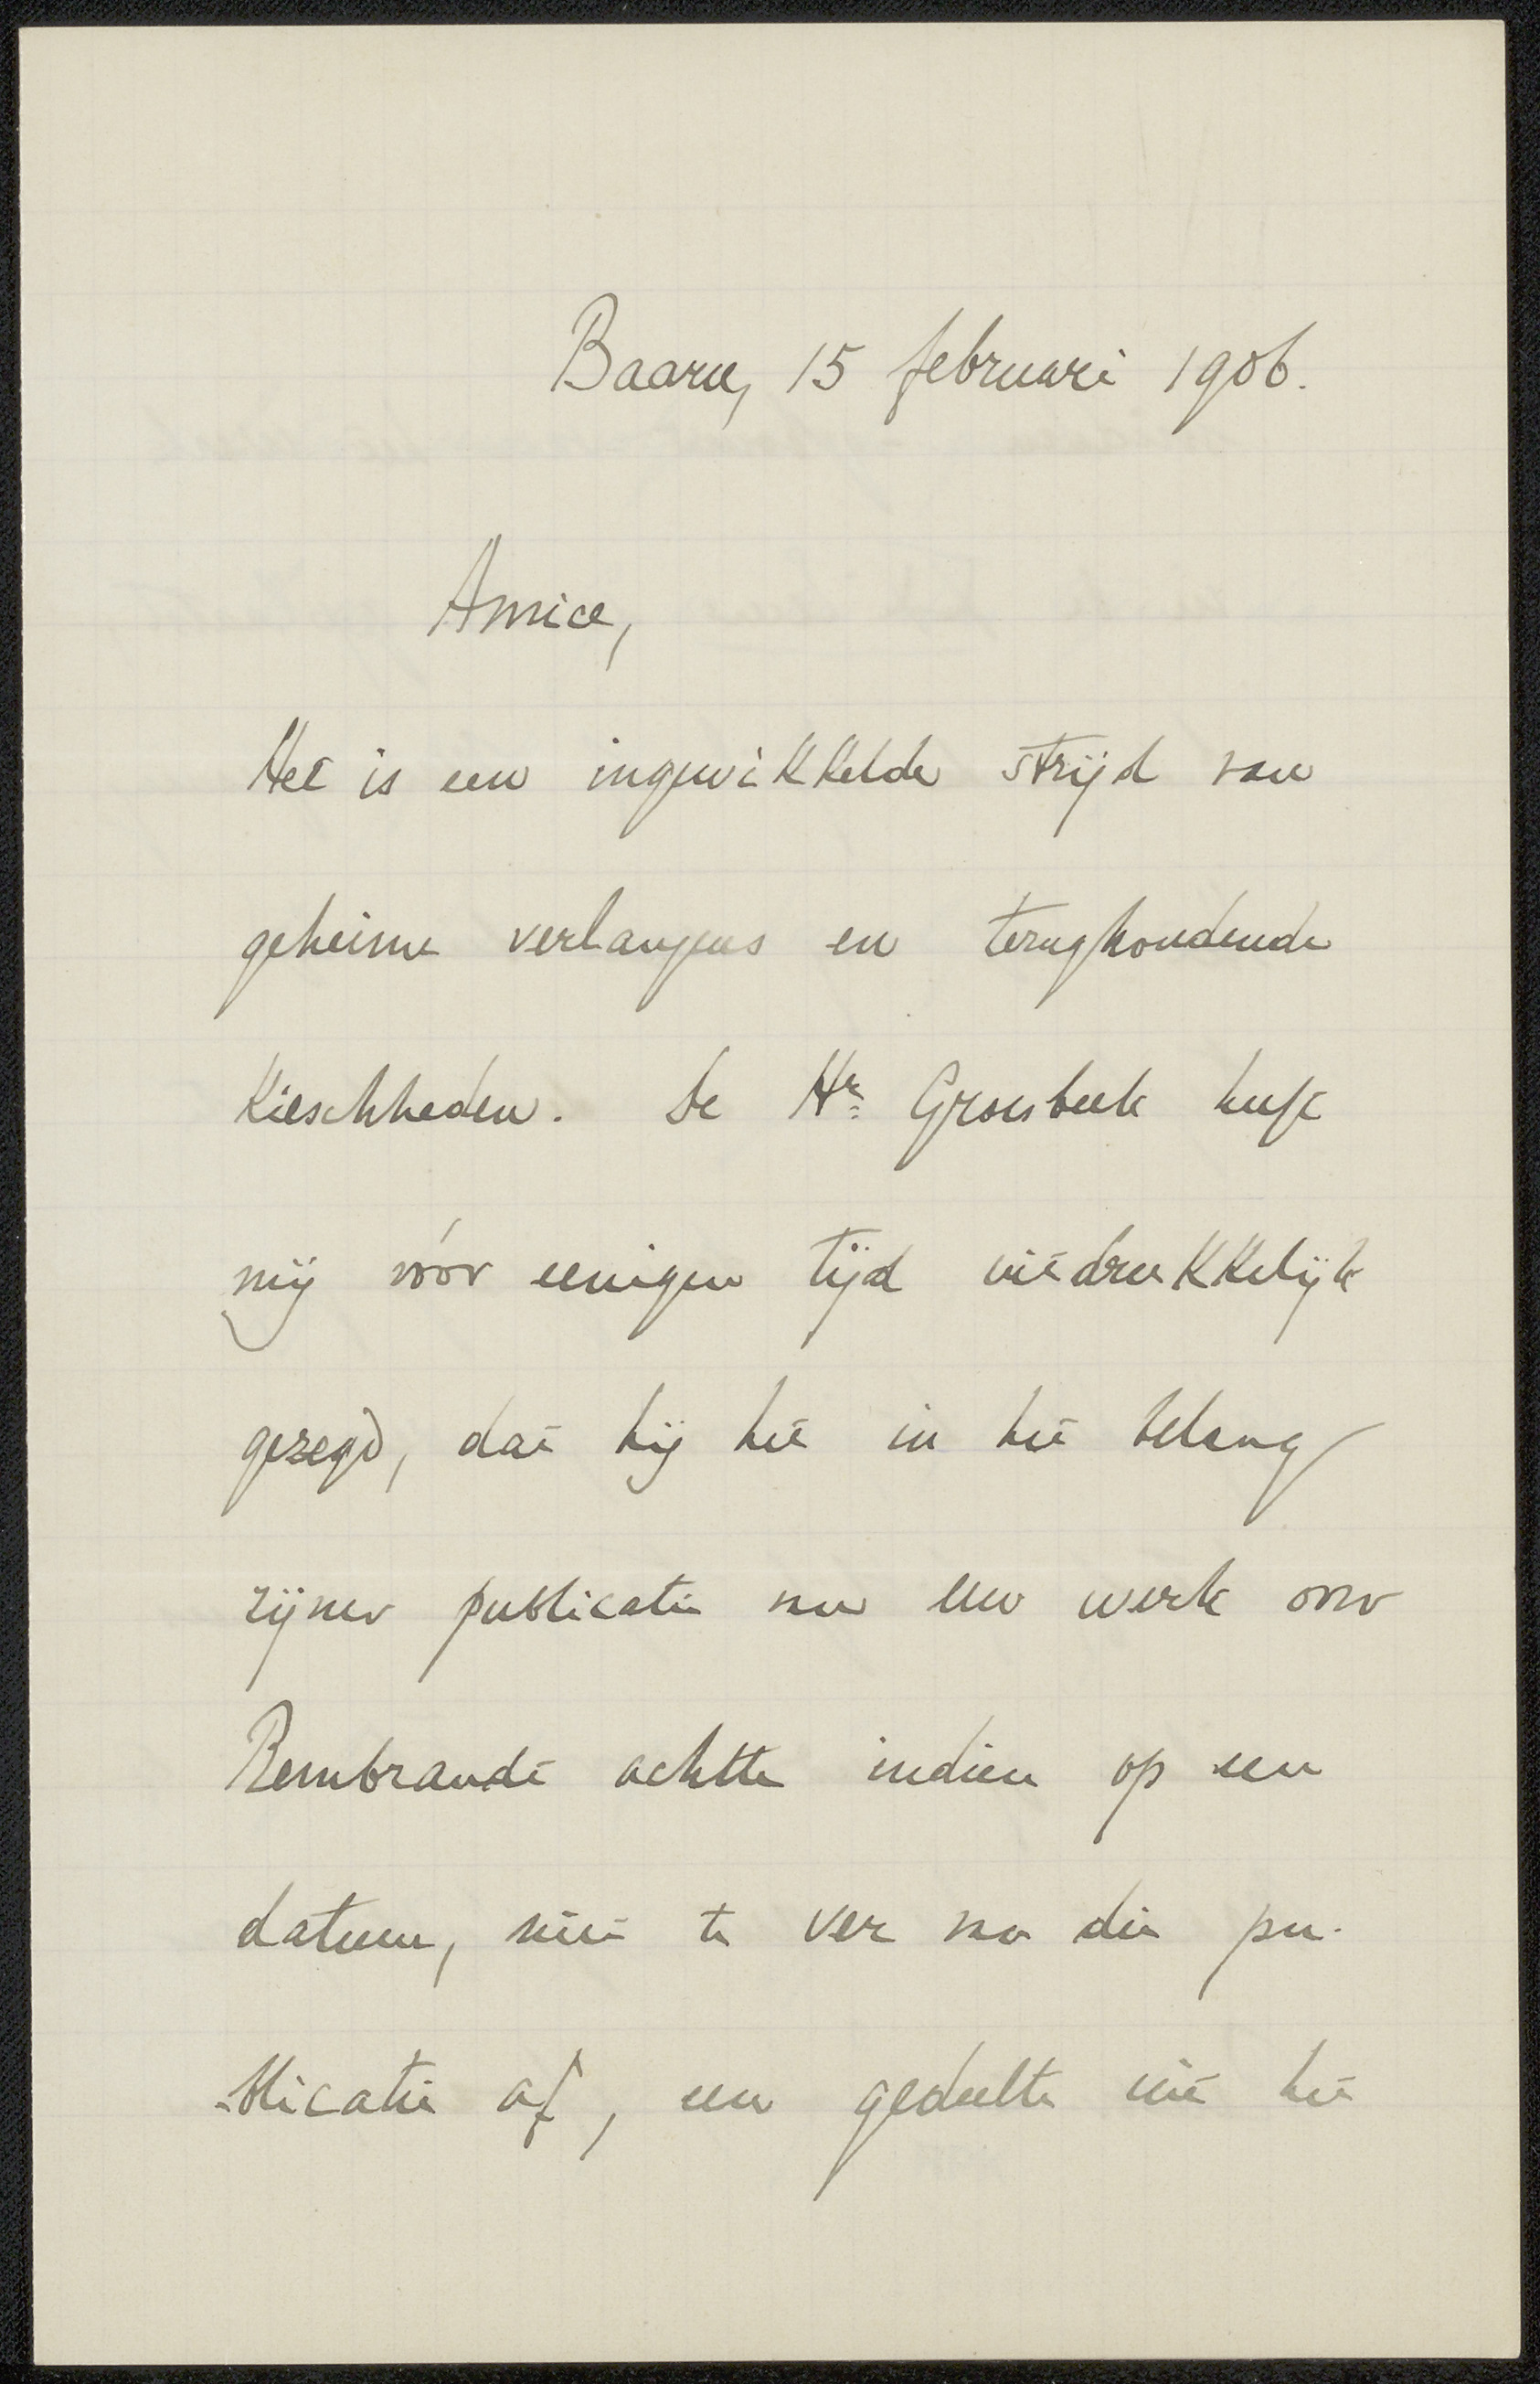 Baarn, 15 februari 1906.
Amice,
Het is een ingewikkelde strijd van
geheime verlangens en terughoudende
kieschheden. De Hr. Groesbeek heeft
mij vóór eenigen tijd uitdrukkelijk
gezegd, dat hij het in het belang
zijner publicatie van Uw werk over
Rembrandt achtte indien op een
datum, niet te ver van die pu-
-blicatie af, een gedeelte uit het